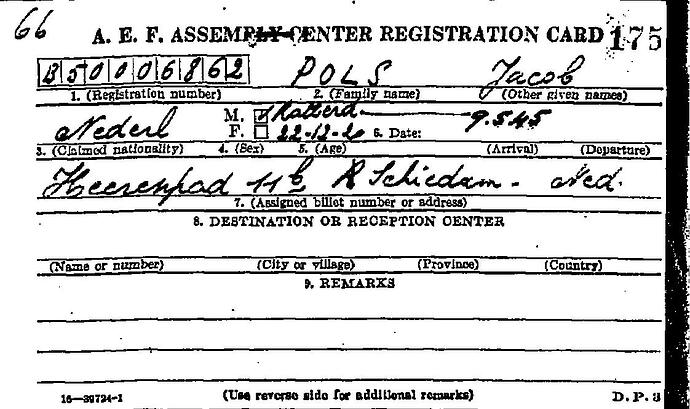 66
A. E. F. ASSEMBLY CENTER REGISTRATION CARD 175
B50006862 POLS Jacob
1. (Registration number) 2. (Family name) (Other given names)
M. Rotterd.
Nederl F. 22-12-20 6. Date: 9.5.45
3. (Claimed nationality) 4. (Sex) 5. (Age) (Arrival) (Departure)
Heerenpad 11b R Schiedam - Ned.
7. (Assigned billet number or address)
8. DESTINATION OR RECEPTION CENTER
(Name or number) (City or village) (Province) (Country)
9. REMARKS
16-39724-1 (Use reverse side for additional remarks) D. P. 3